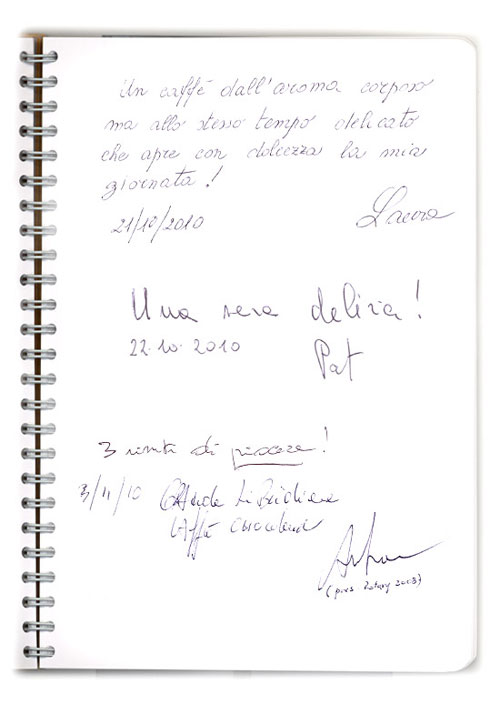 Un caffè dall'aroma corposo
ma allo stesso tempo delicato
che apre con dolcezza la mia
giornata!
21/10/2010 Laura
Una vera delizia!
22.10.2010 Pat
3 minuti di piacere!
3/11/10
Caffè
(pres Rotary 2008)